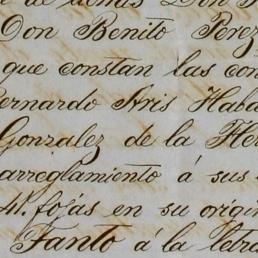 de demas Don
Don Benito Perez
que constan las con
Bernardo Aris Haba
Gonzalez de la Her
arreglamiento á sus
41. fojas en su origin
Tanto á la letra